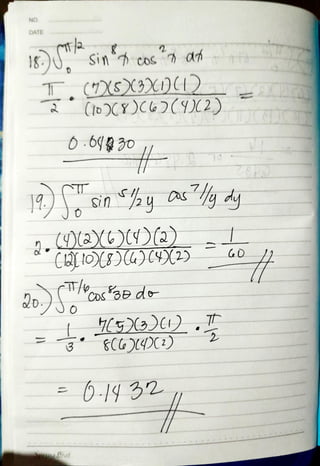 NO.
DATE
18.) ∫₀^π/2 sin⁸ x cos² x dx
π/2 · (7)(5)(3)(1)(1) / (10)(8)(6)(4)(2) =
0.04230
19.) ∫₀^π sin ⁵ 1/2 y cos ⁷ 1/y dy
2 · (4)(2)(6)(4)(2) / (12)(10)(8)(6)(4)(2) = 1/60
20.) ∫₀^π/6 cos⁸ 3θ dθ
= 1/3 · 7(5)(3)(1) / 8(6)(4)(2) · π/2
= 0.1432